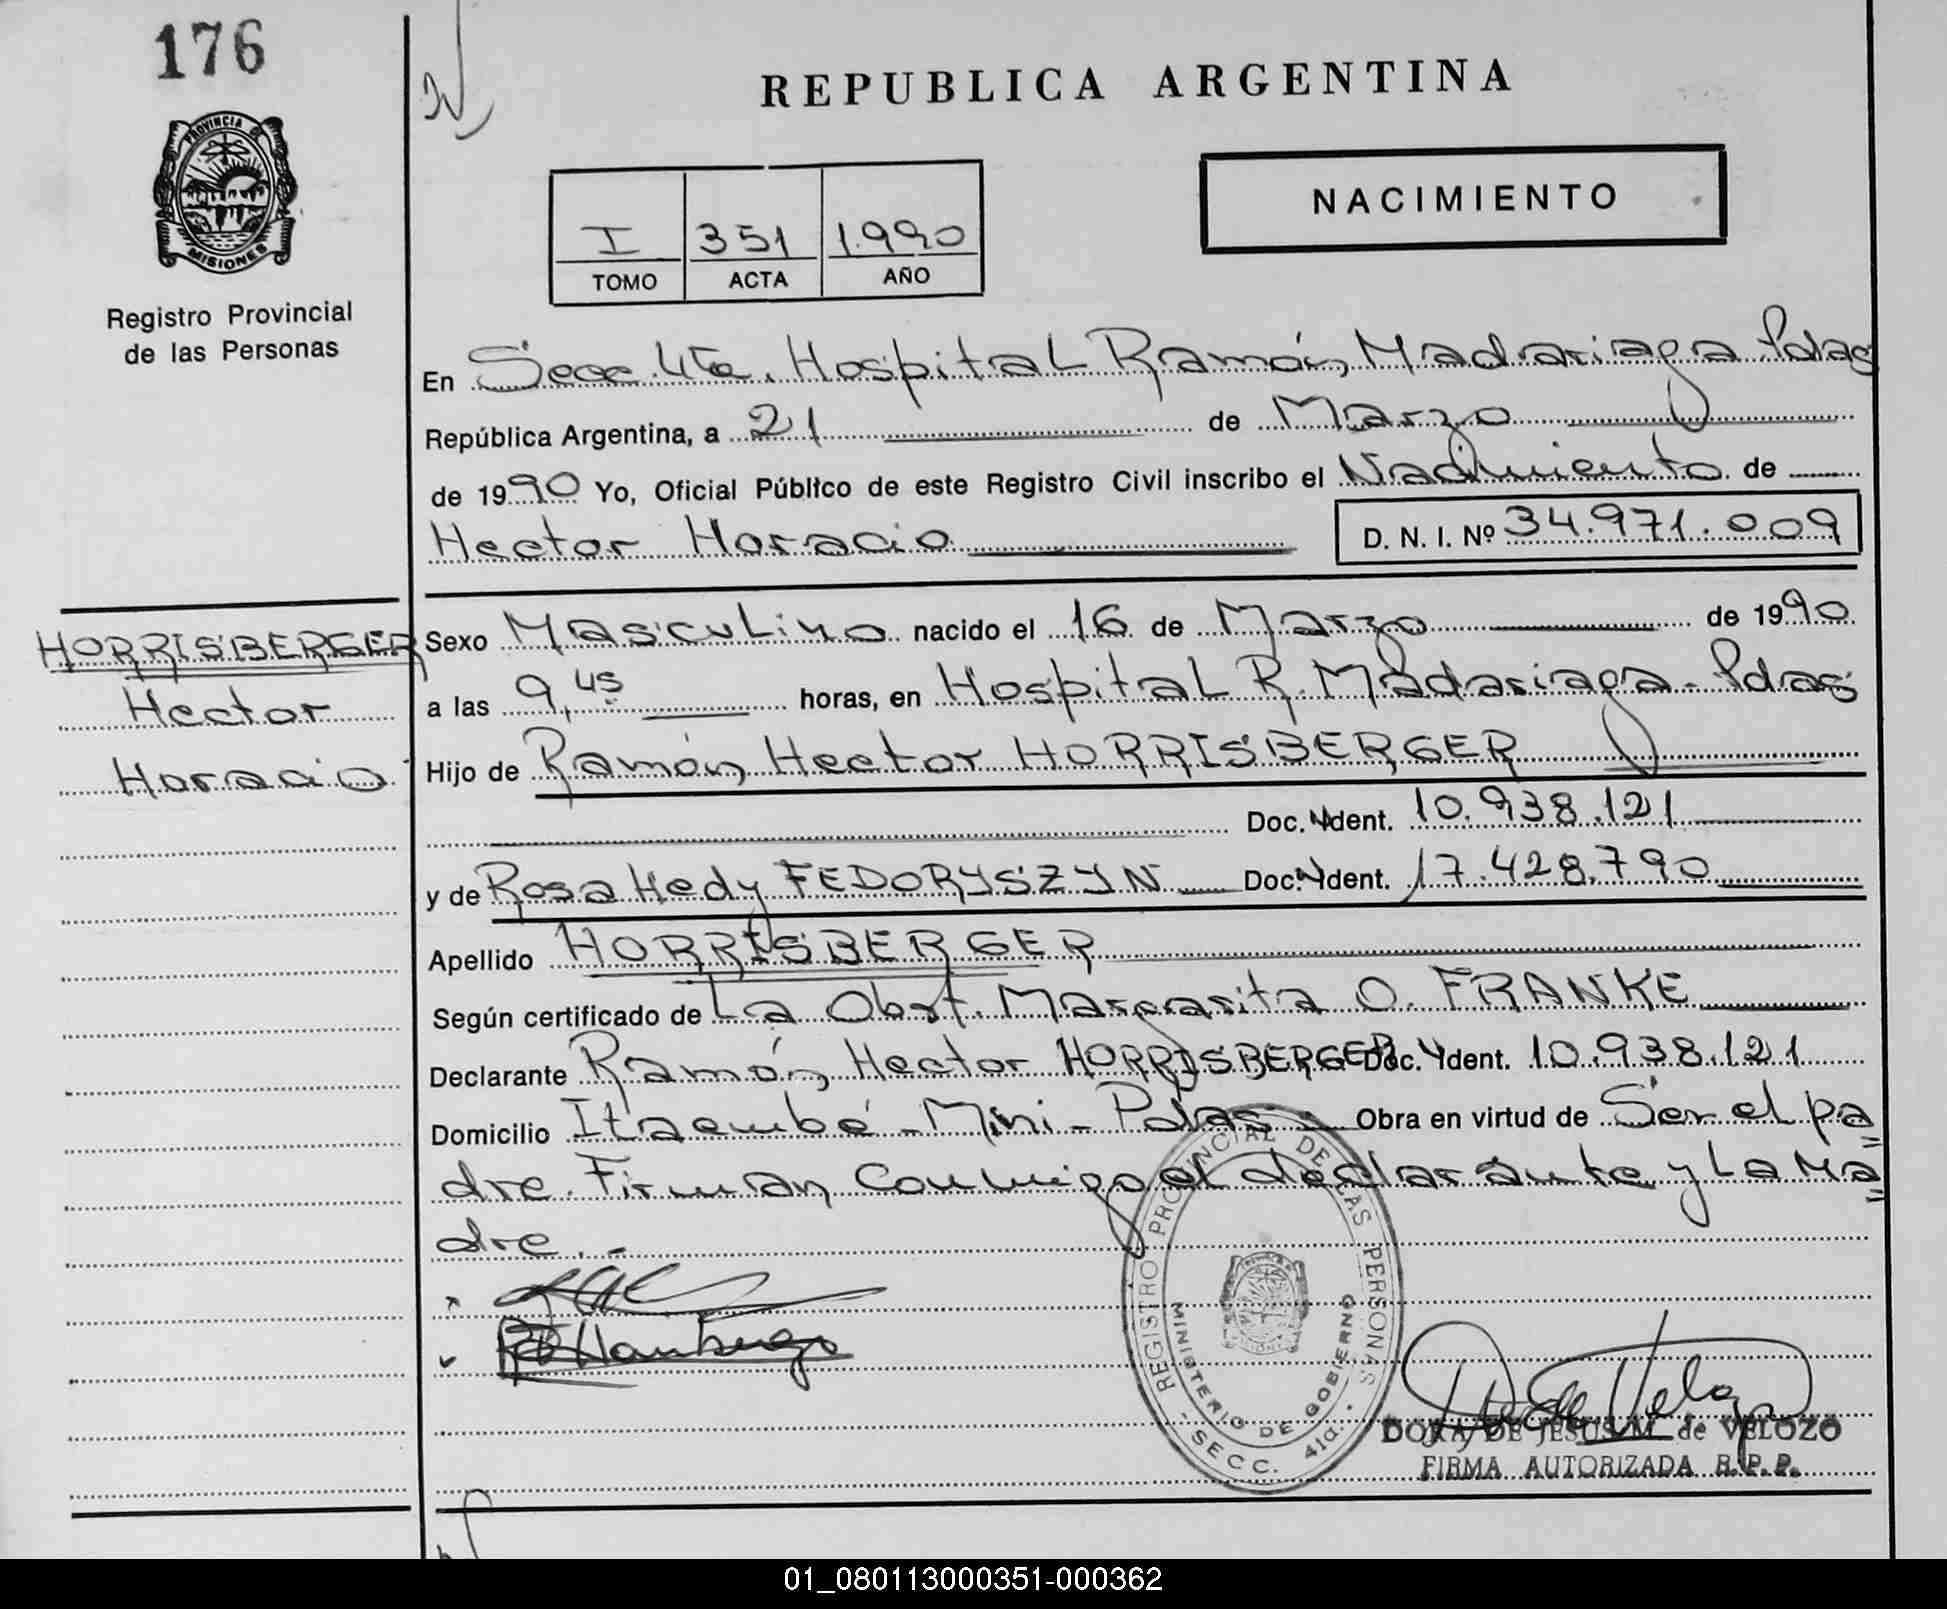 176
PROVINCIA DE
MISIONES
Registro Provincial
de las Personas
REPUBLICA ARGENTINA
NACIMIENTO
I 351 1.990
TOMO ACTA AÑO
En Secc 4ta. Hospital Ramón Madariaga Pdas
República Argentina, a 21 de Marzo
de 1990 Yo, Oficial Público de este Registro Civil inscribo el Nacimiento de
Hector Horacio D. N. I. Nº 34.971.009
HORRISBERGER
Hector
Horacio
Sexo Masculino nacido el 16 de Marzo de 1990
a las 9,45 horas, en Hospital R. Madariaga - Pdas
Hijo de Ramón Hector HORRISBERGER
Doc. Ydent. 10.938.121
y de Rosa Hedy FEDORYSZYN Doc. Ydent. 17.428.790
Apellido HORRISBERGER
Según certificado de La Obst. Margarita O. FRANKE
Declarante Ramón Hector HORRISBERGER Doc. Ydent. 10.938.121
Domicilio Itaembé - Mini - Pdas Obra en virtud de Ser el pa=
dre. Firman Conmigo el declarante y La Ma=
dre. -
REGISTRO PROVINCIAL DE LAS PERSONAS
MINISTERIO DE GOBIERNO
- SECC. 4ta. -
DORA DE JESUS M. de VELOZO
FIRMA AUTORIZADA R.P.P.
01_080113000351-000362